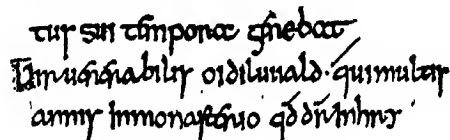 tus sui tempora gerebat
Uir uenerabilis oidiluuald · qui multis
annis in monasterio qđ dr̄